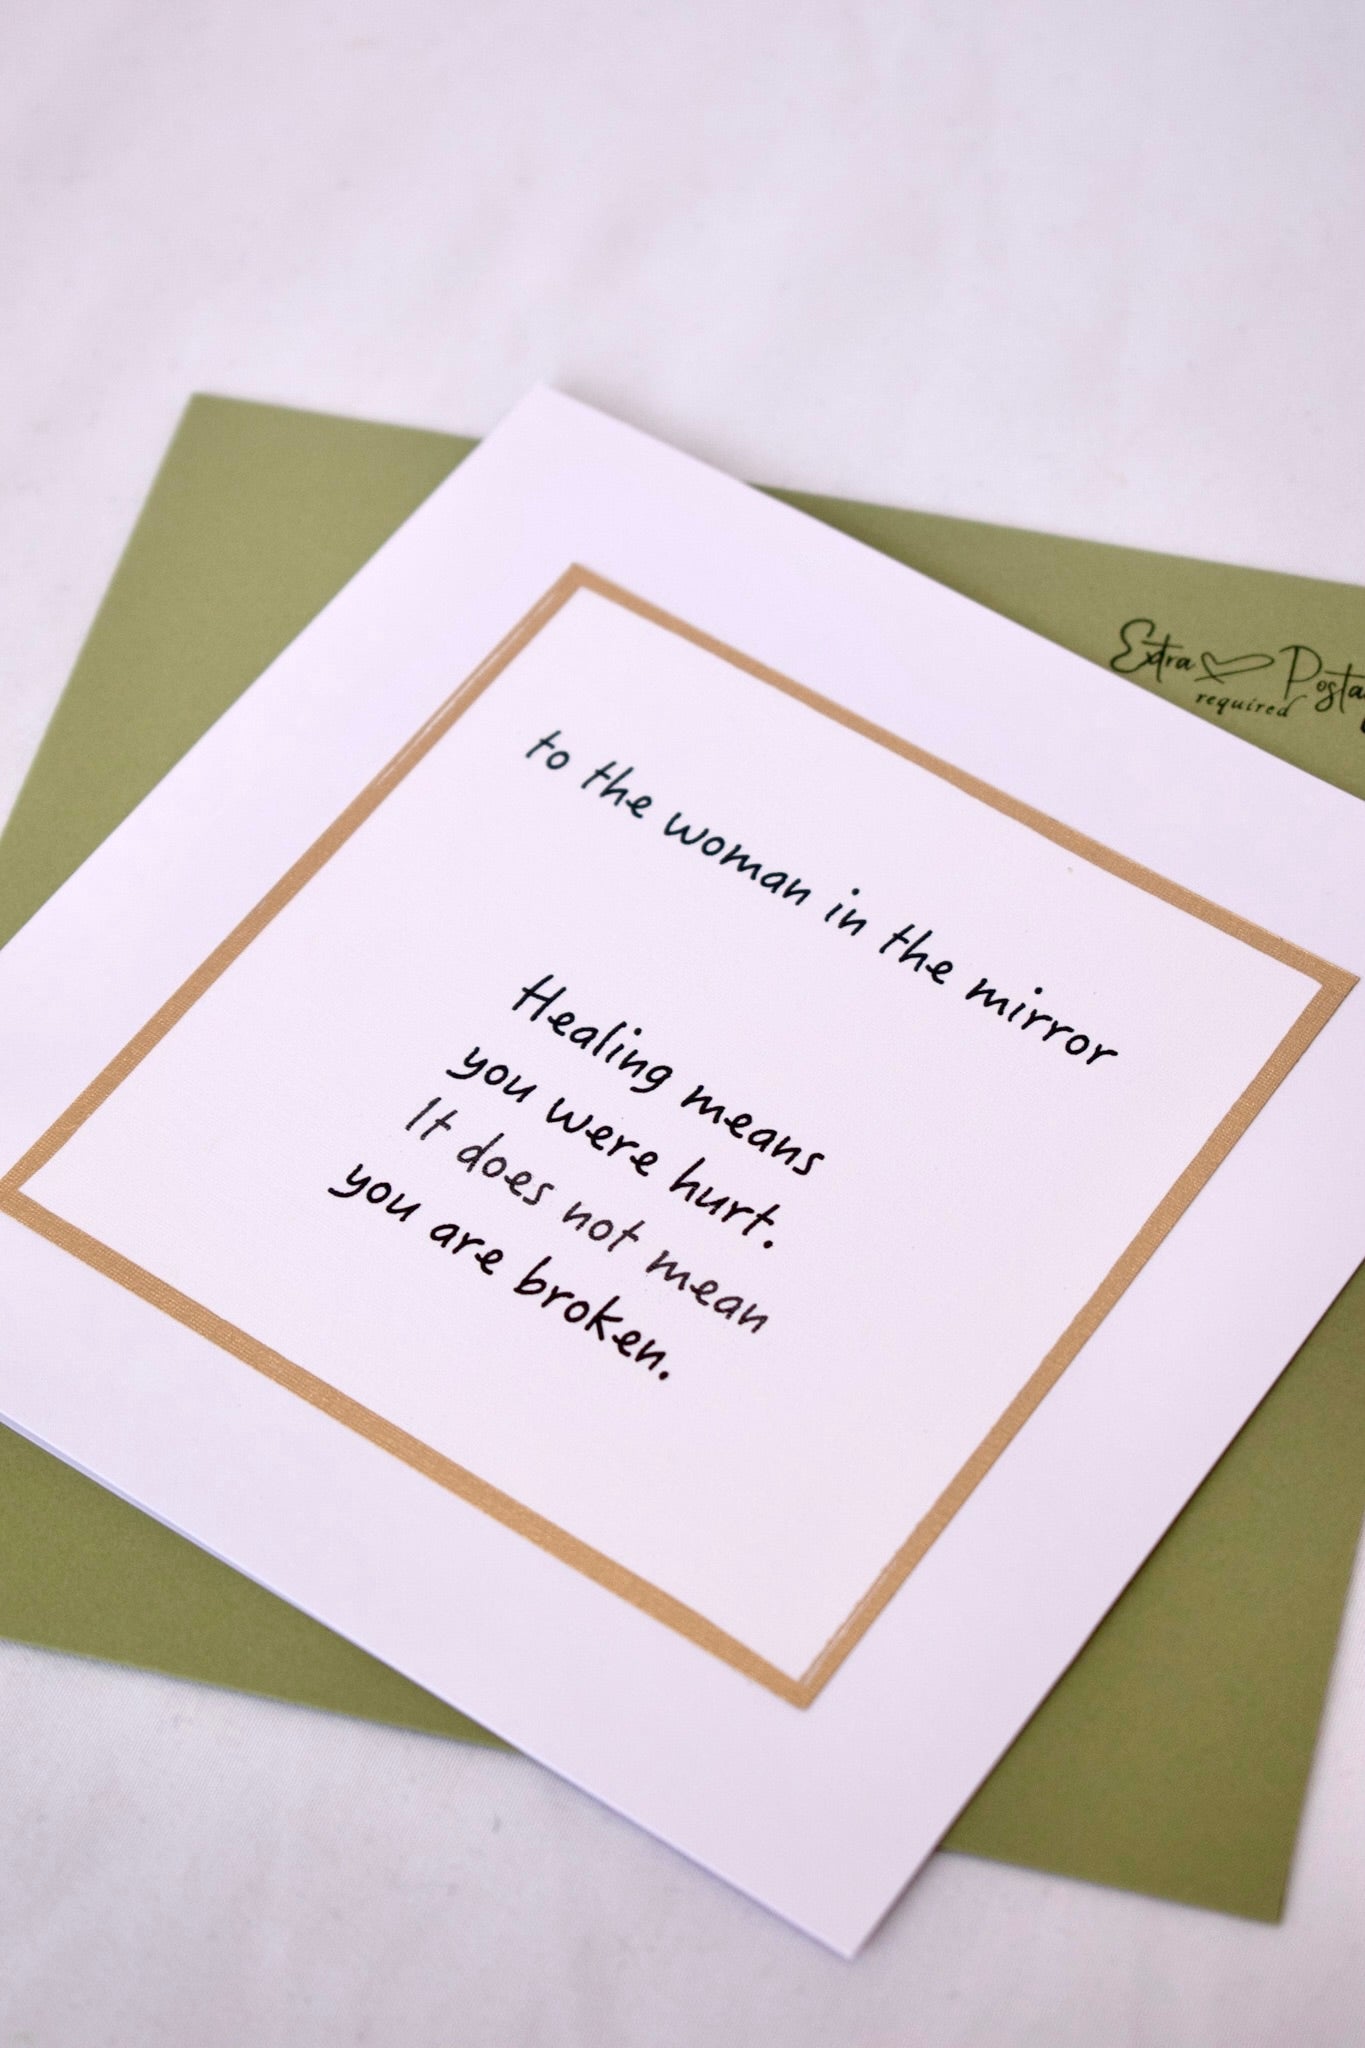 Extra Posta
required
to the woman in the mirror
Healing means
you were hurt.
It does not mean
you are broken.